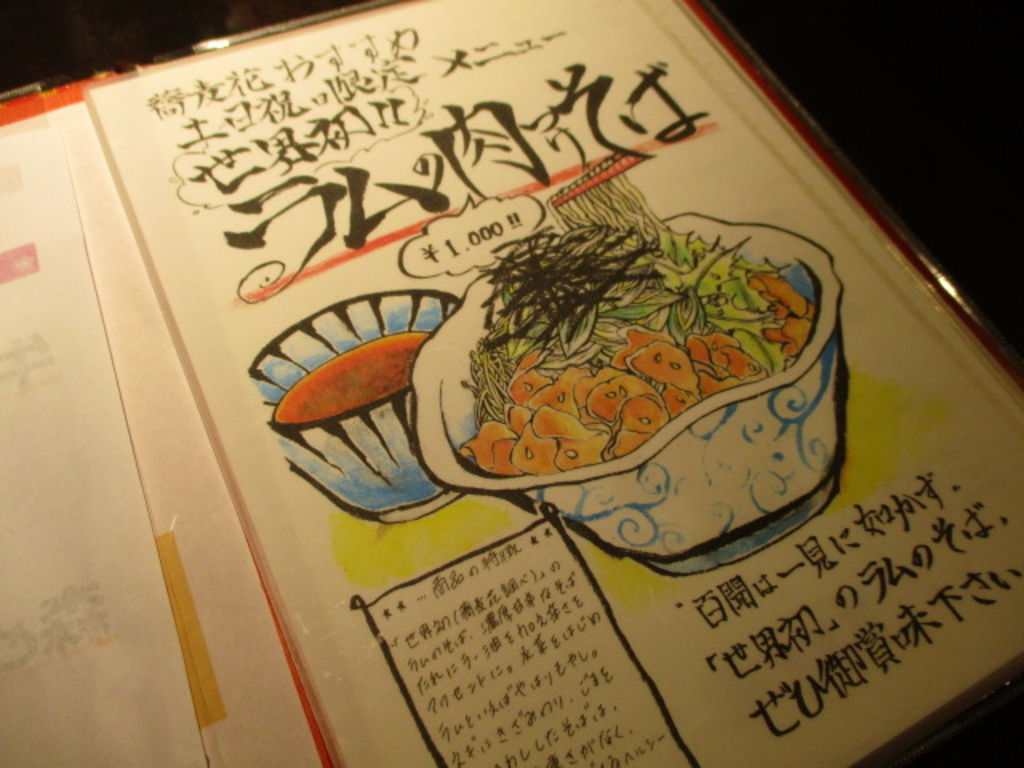 蕎麦花 おすすめ
土日祝日限定 メニュー
世界初!!
ラムの肉つけそば
¥1.000!!
…商品の特徴…
「世界初(蕎麦花調べ)」の
ラムのそば、濃厚甘辛なそば
だれにラー油を加え辛さを
アクセントに。水菜をはじめ
ラムといえばやはりもやし。
久々にきざみのり、ごまを
わしした そばは、
さがなく、
ヘルシー
"百聞は一見に如かず、
「世界初」のラムのそば、
ぜひ御賞味下さい